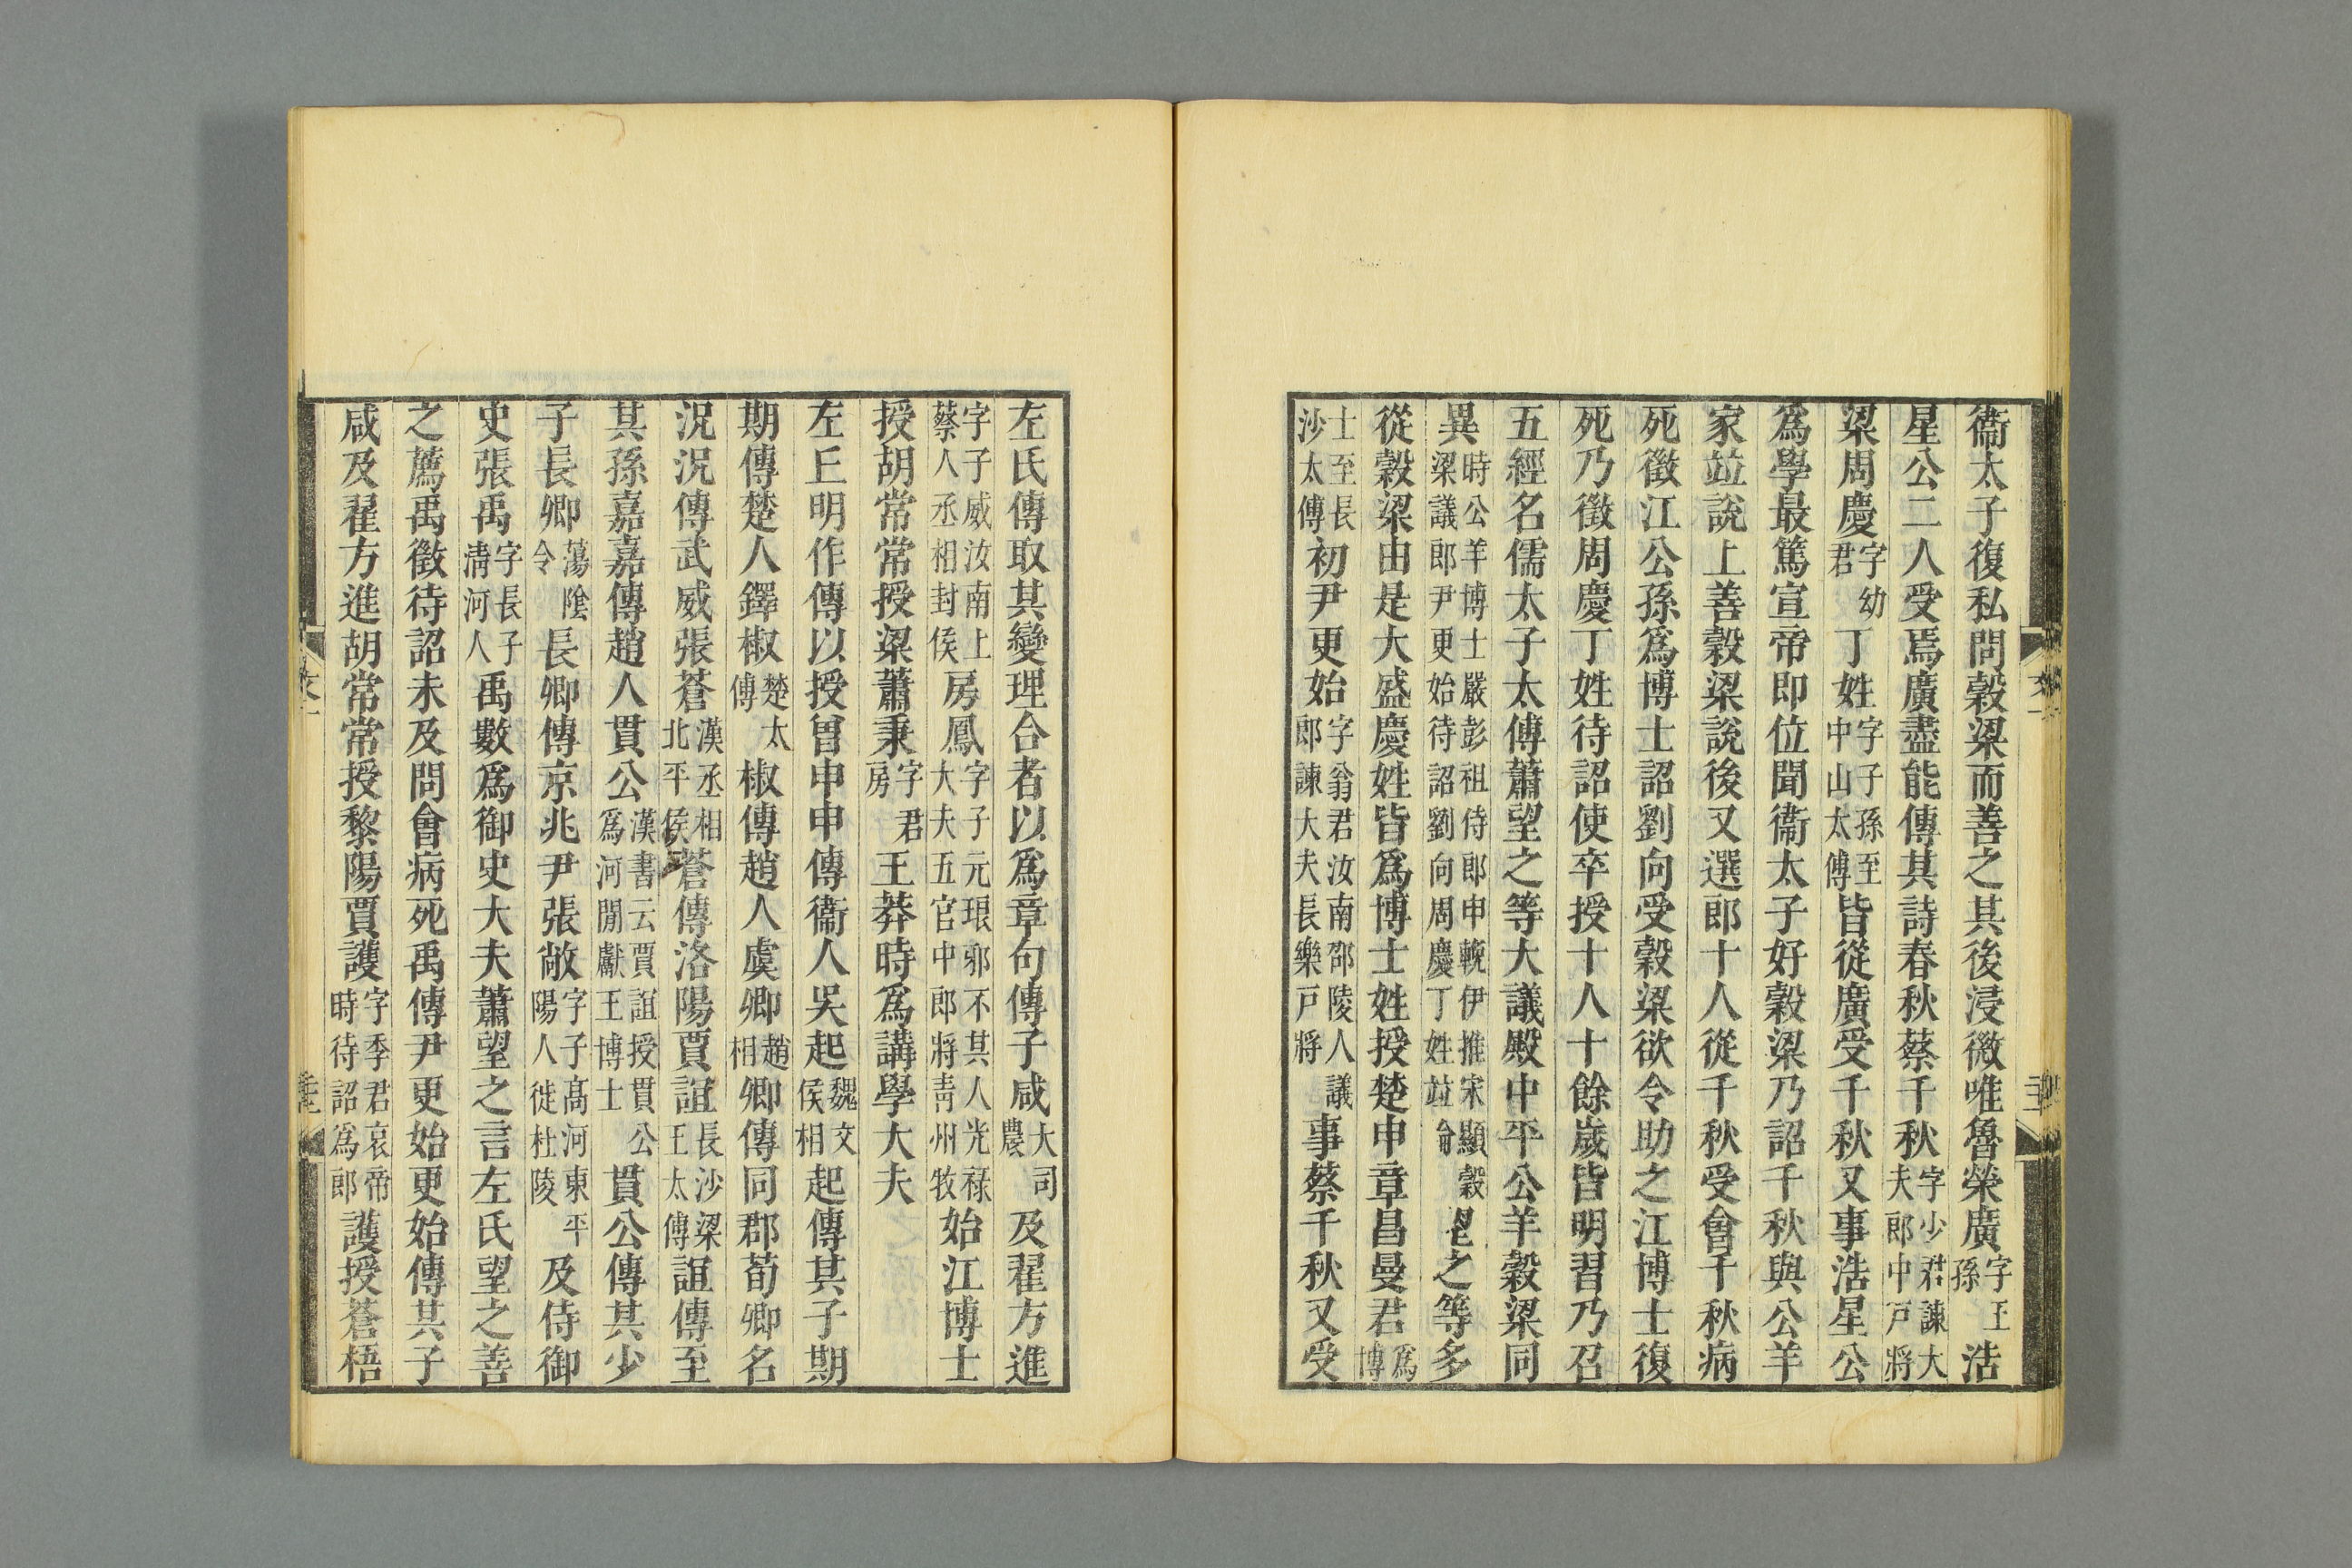 衞太子復私問榖梁而善之其後浸微唯魯榮廣字王孫浩
星公二人受焉廣盡能傳其詩春秋蔡千秋字少君諫大夫郎中戸將
梁周慶字幼君丁姓字子孫至中山太傅皆從廣受千秋又事浩星公
爲學最篤宣帝即位聞衞太子好榖梁乃詔千秋與公羊
家竝說上善榖梁說後又選郎十人從千秋受會千秋病
死徵江公孫爲博士詔劉向受榖梁欲令助之江博士復
死乃徵周慶丁姓待詔使卒授十人十餘歲皆明習乃召
五經名儒太子太傅蕭望之等大議殿中平公羊榖梁同
異時公羊博士嚴彭祖侍郎申輓伊推宋顯榖梁議郎尹更始待詔劉向周慶丁姓竝論望之等多
從榖梁由是大盛慶姓皆爲博士姓授楚申章昌曼君爲博
士至長沙太傅初尹更始字翁君汝南邵陵人議郎諫大夫長樂戸將事蔡千秋又受
左氏傳取其變理合者以爲章句傳子咸大司農及翟方進
字子威汝南上蔡人丞相封侯房鳳字子元琅邪不其人光祿大夫五官中郎將靑州牧始江博士
授胡常常授梁蕭秉字君房王莽時爲講學大夫
左丘明作傳以授曾申申傳衞人吳起魏文侯相起傳其子期
期傳楚人鐸椒楚太傅椒傳趙人虞卿趙相卿傳同郡荀卿名
況況傳武威張蒼漢丞相北平侯蒼傳洛陽賈誼長沙梁王太傅誼傳至
其孫嘉嘉傳趙人貫公漢書云賈誼授貫公爲河閒獻王博士貫公傳其少
子長卿蕩陰令長卿傳京兆尹張敞字子高河東平陽人徙杜陵及侍御
史張禹字長子淸河人禹數爲御史大夫蕭望之言左氏望之善
之薦禹徵待詔未及問會病死禹傳尹更始更始傳其子
咸及翟方進胡常常授黎陽賈護字季君哀帝時待詔爲郎護授蒼梧